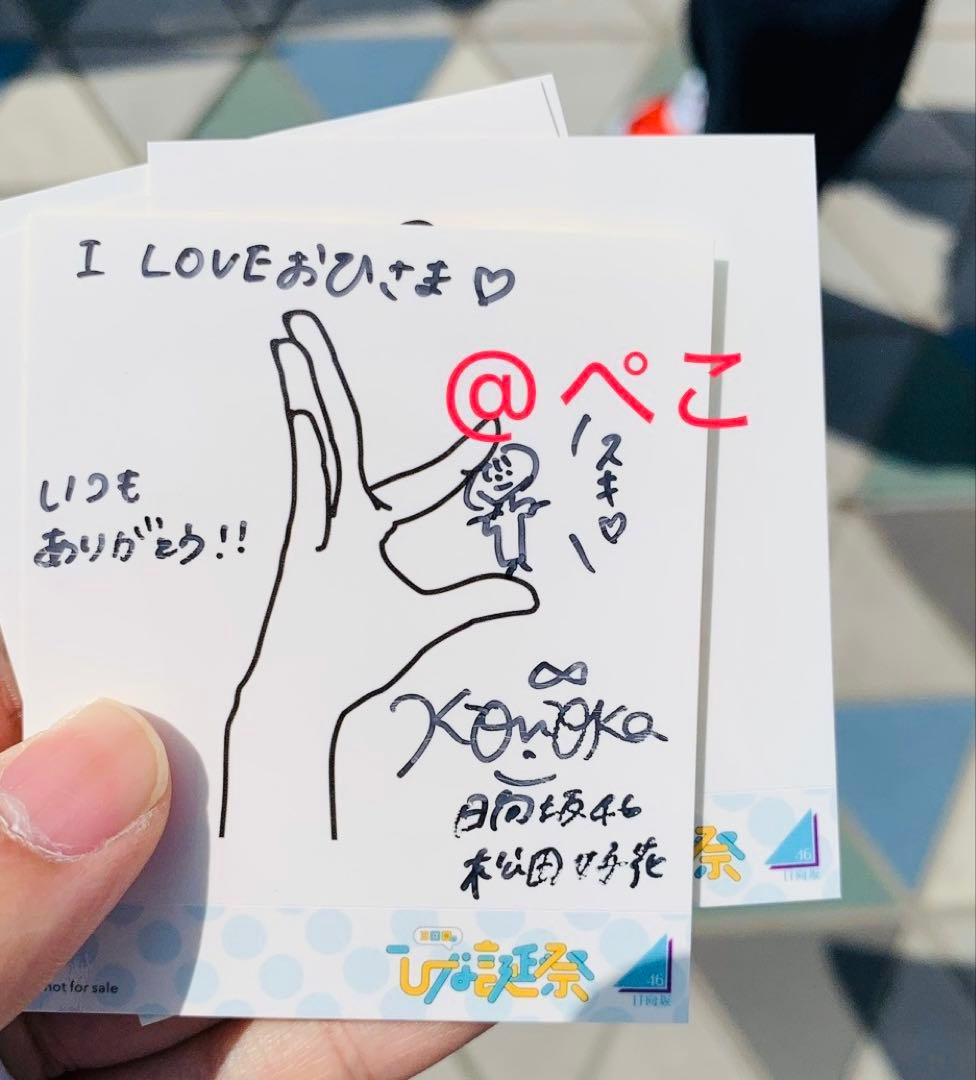 I LOVEおひさま♡
@ぺこ
スキ♡
いつも
ありがとう!!
Konoka
日向坂46
松田好花
ひな誕祭
46
日向坂
not for sale
祭
46
日向坂